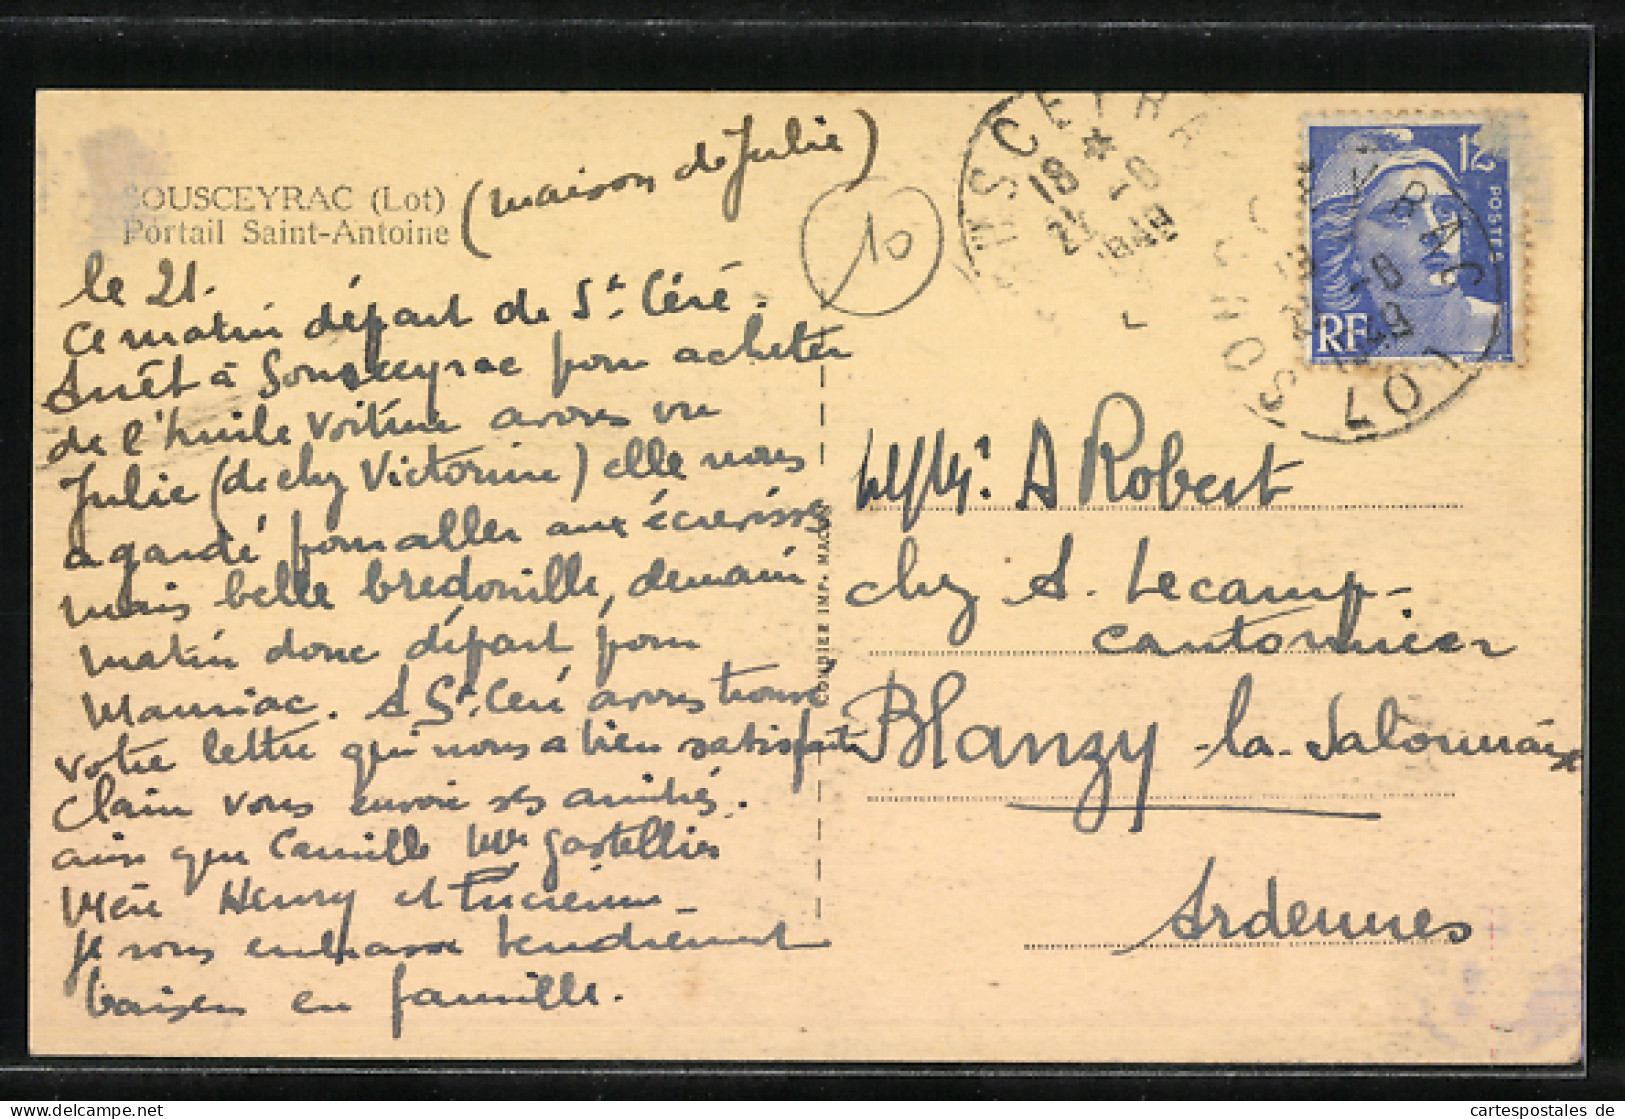 SOUSCEYRAC (Lot)
Portail Saint-Antoine
(maison de Julie)
10
le 21.
Ce matin départ de St Céré.
Arrêt à Sousceyrac pour acheter
de l'huile voiture avons vu
Julie (de chez Victorine) elle nous
a gardé pour aller aux écrevisses
mais belle bredouille, demain
matin donc départ pour
Mauriac. A St Céré avons trouvé
votre lettre qui nous a bien satisfaits
Clair vous envoie ses amitiés.
ainsi que Camille Mme
Mère Henry et Lucienne
je vous embrasse tendrement
baisers en famille.
CORDIER IMP.
SOUSCEYRAC
18 *
21 -8
1949
12
POSTES
RF
SOUSCEYRAC
-8
1949
LOT
A Robert
chez A. Lecamp-
cantonnier
Blanzy-la-Salonnaise
Ardennes
cartespostales de